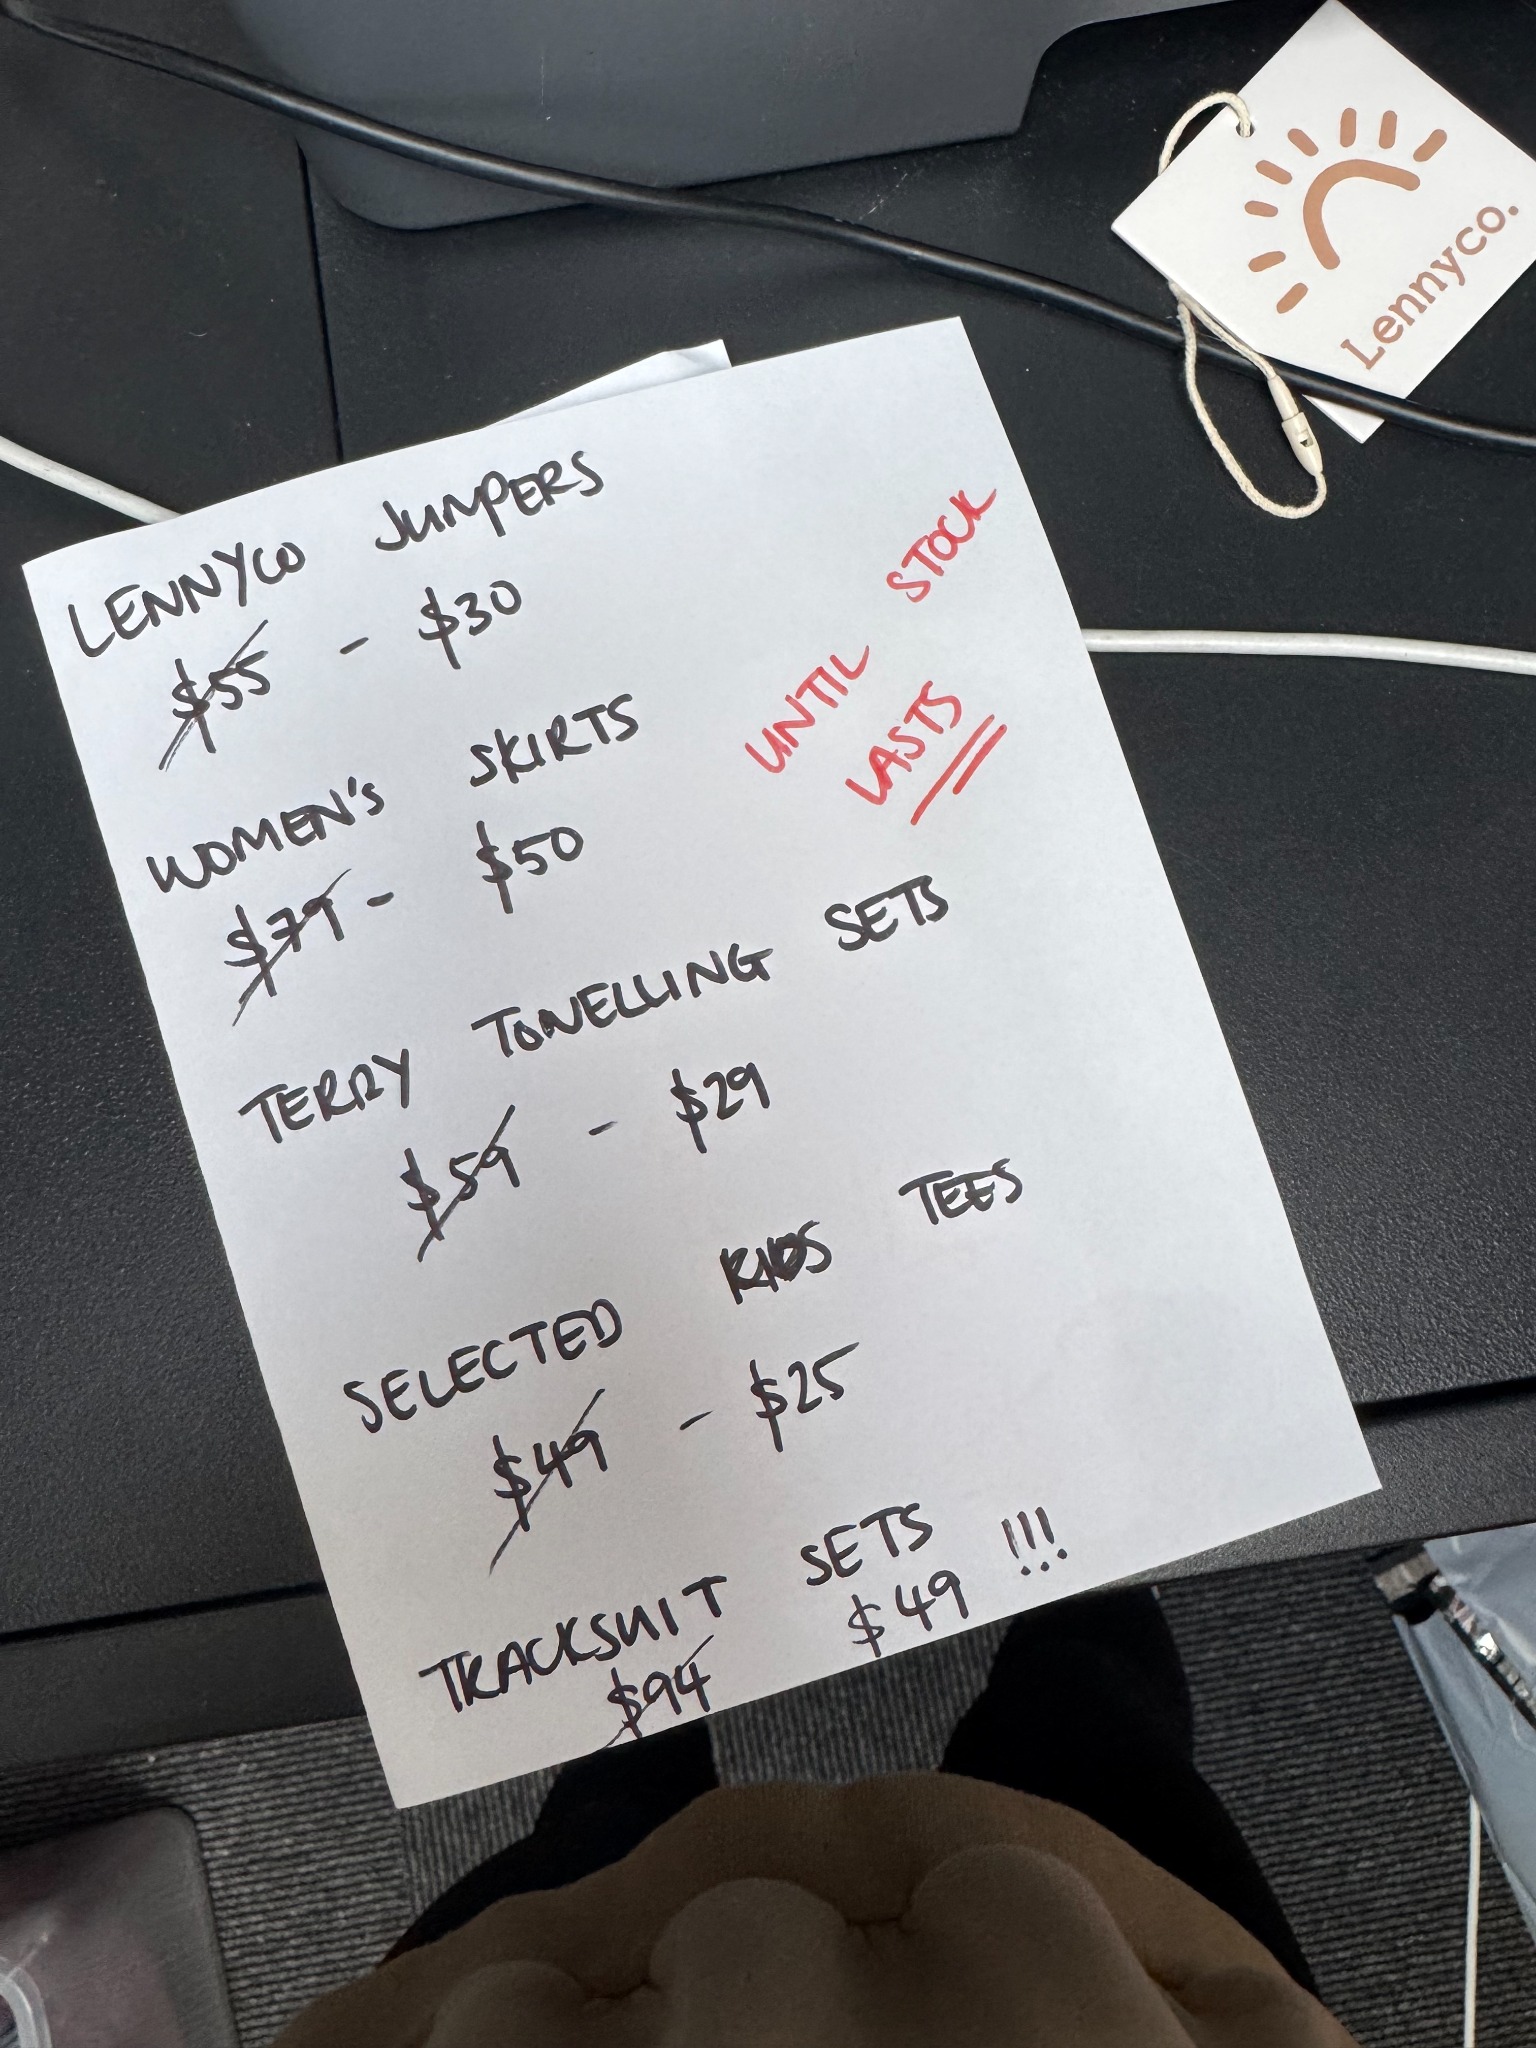 Lennyco.
LENNYCO JUMPERS
$55 - $30
WOMEN'S SKIRTS
$79 - $50
UNTIL STOCK
LASTS
TERRY TOWELLING SETS
$59 - $29
SELECTED KIDS TEES
$49 - $25
TRACKSUIT SETS
$94 $49 !!!